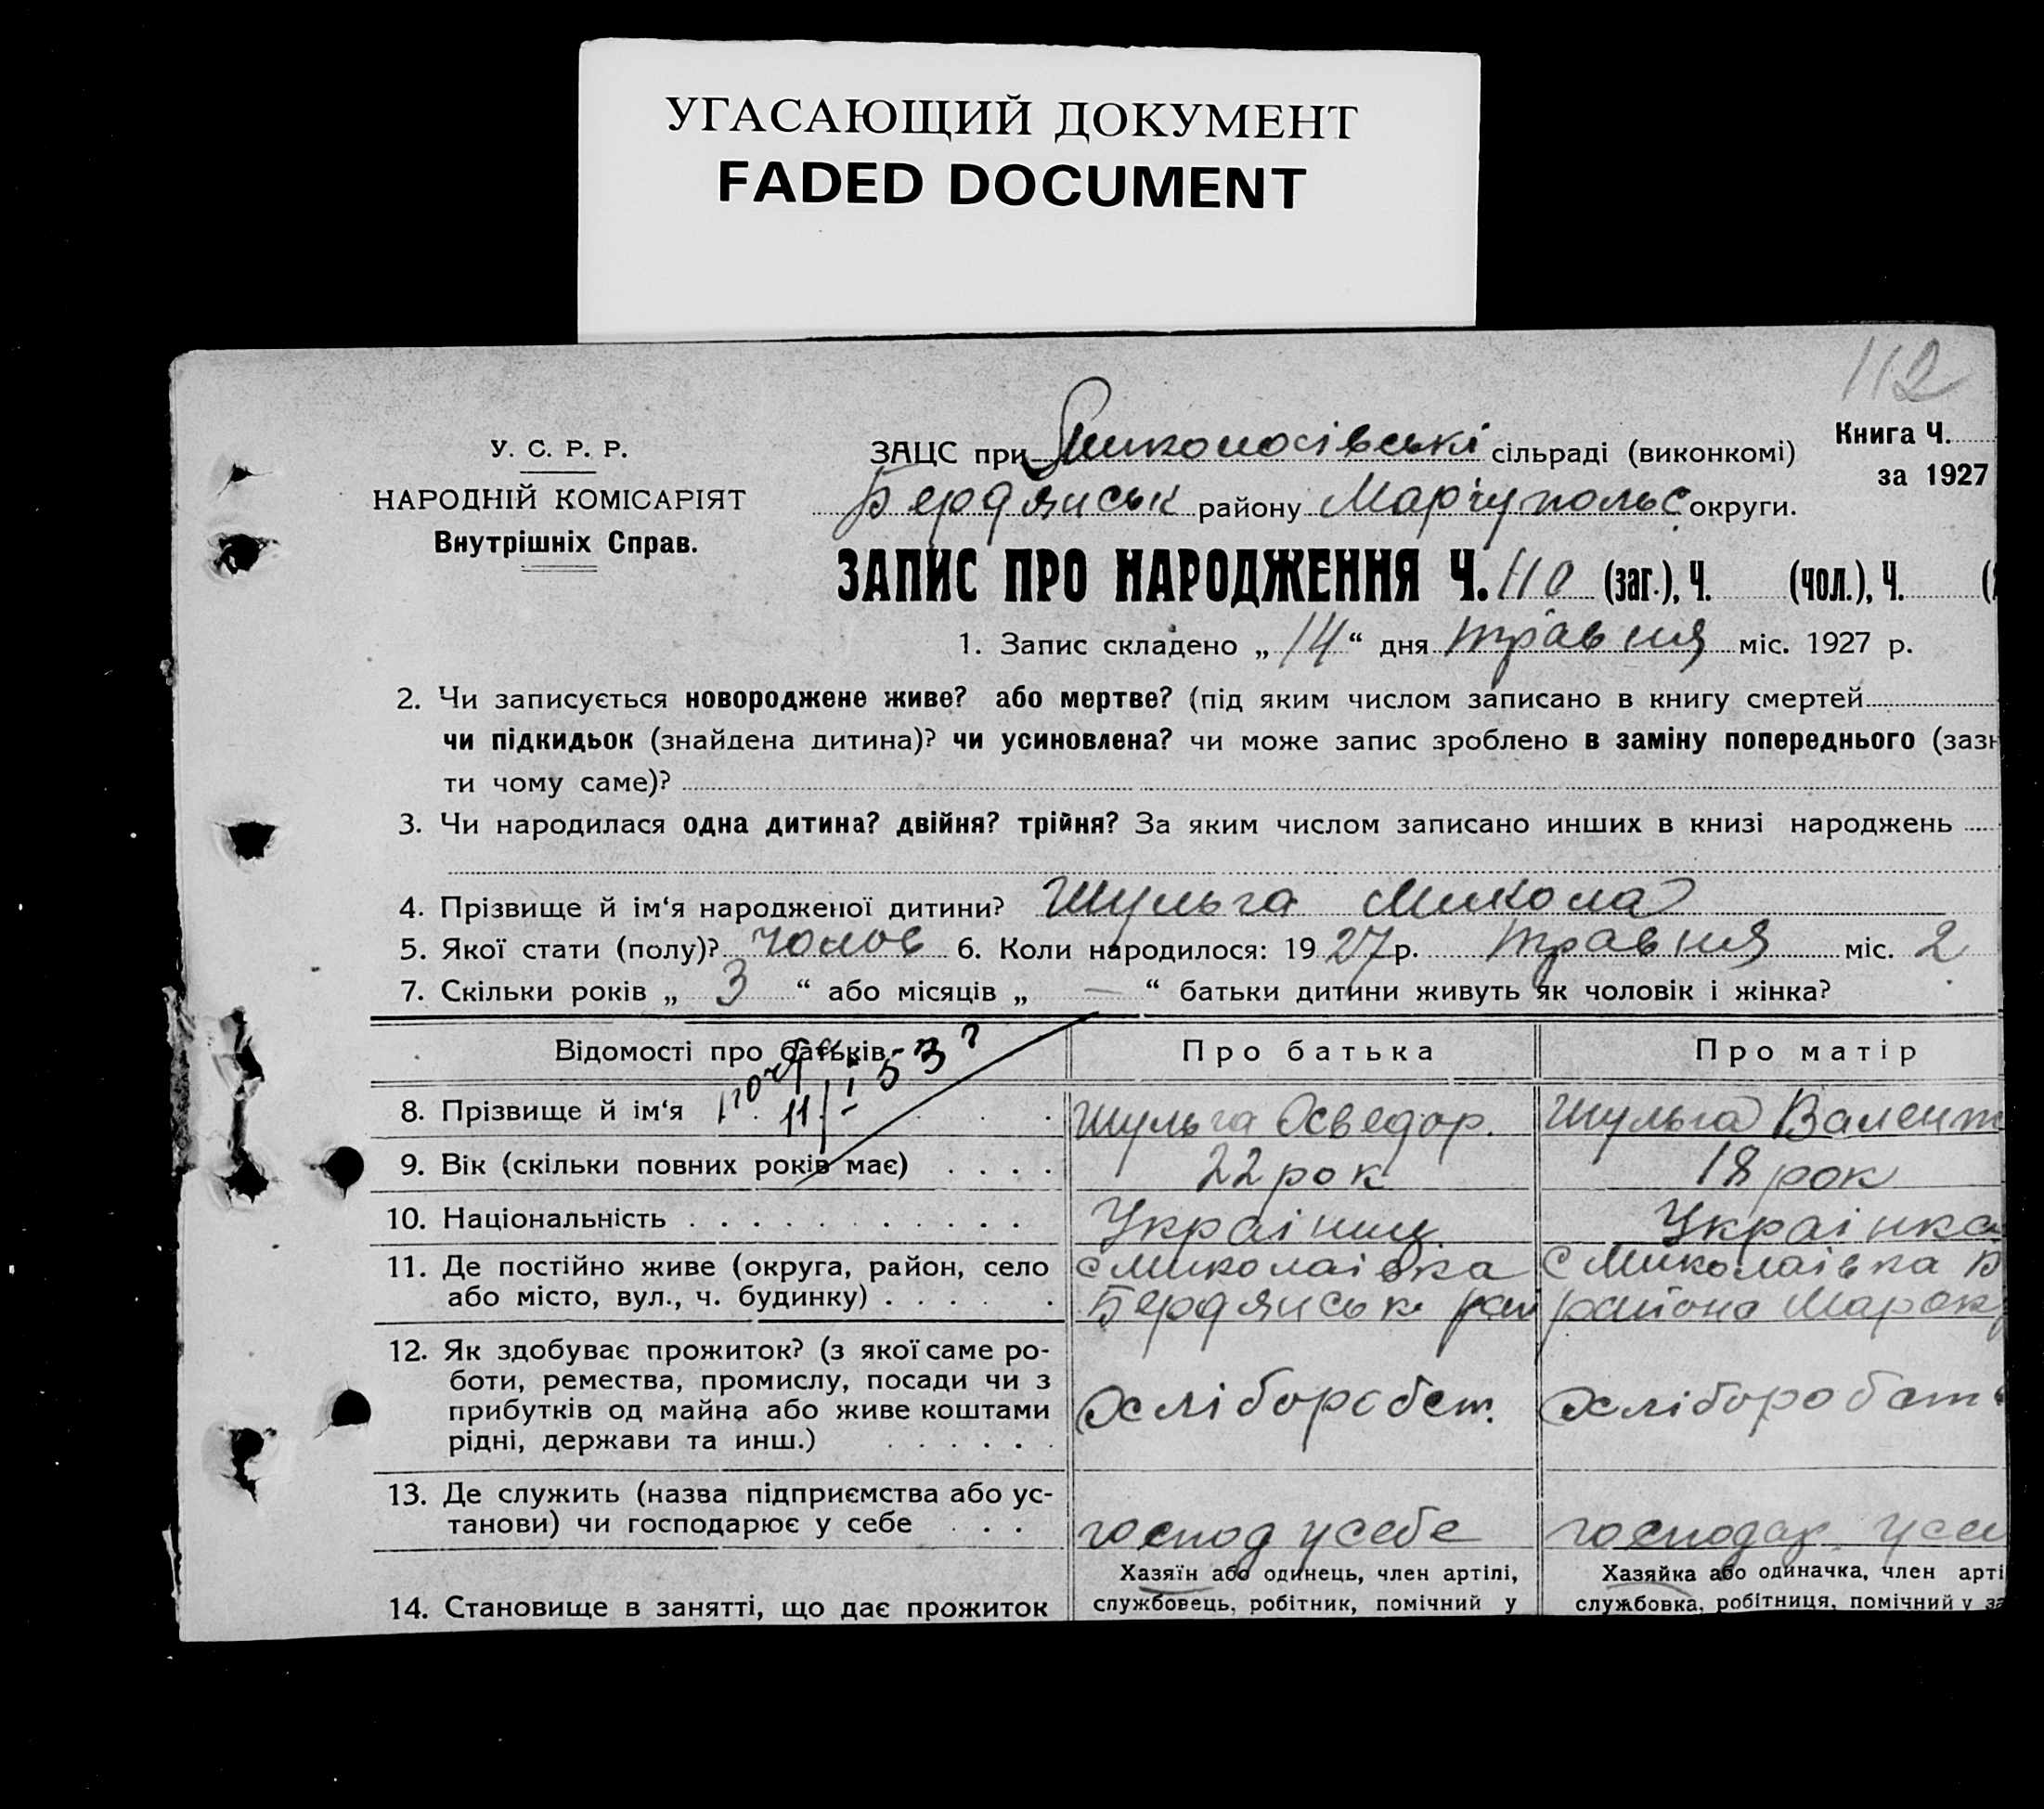 УГАСАЮЩИЙ ДОКУМЕНТ
FADED DOCUMENT
112
У. С. Р. Р.
НАРОДНІЙ КОМІСАРІЯТ
Внутрішніх Справ.
ЗАЦС при сільраді (виконкомі)
Книга Ч.
за 1927
Бердянськ району Маріупольс округи.
ЗАПИС ПРО НАРОДЖЕННЯ Ч. 110 (заг.), Ч. (чол.), Ч.
1. Запис складено „ 14 “ дня травня міс. 1927 р.
2. Чи записується новороджене живе? або мертве? (під яким числом записано в книгу смертей
чи підкидьок (знайдена дитина)? чи усиновлена? чи може запис зроблено в заміну попереднього (зазн
ти чому саме)?
3. Чи народилася одна дитина? двійня? трійня? За яким числом записано инших в книзі народжень
4. Прізвище й ім‘я народженої дитини? Шульга Микола
5. Якої стати (полу)? чолов 6. Коли народилося: 1927 р. травня міс. 2
7. Скільки років „ 3 “ або місяців „ — “ батьки дитини живуть як чоловік і жінка?
Відомості про батьків
Про батька
Про матір
11/I 53 г
8. Прізвище й ім‘я . . .
Шульга Хведор.
Шульга Валент
9. Вік (скільки повних років має) . . . .
22 рок
18 рок
10. Національність . . . . . . . . . . .
Украінец.
Украінка
11. Де постійно живе (округа, район, село
або місто, вул., ч. будинку) . . . . .
с Миколаівка
Бердянськ рай
с Миколаівка Б
района Мар ок
12. Як здобуває прожиток? (з якої саме ро-
боти, ремества, промислу, посади чи з
прибутків од майна або живе коштами
рідні, держави та инш.) . . . . . .
Хлібороб ст.
13. Де служить (назва підприємства або ус-
танови) чи господарює у себе . . .
господ у себе
господар усеи
14. Становище в занятті, що дає прожиток
Хазяїн або одинець, член артілі,
службовець, робітник, помічний у
Хазяйка або одиначка, член арті
службовка, робітниця, помічний у за